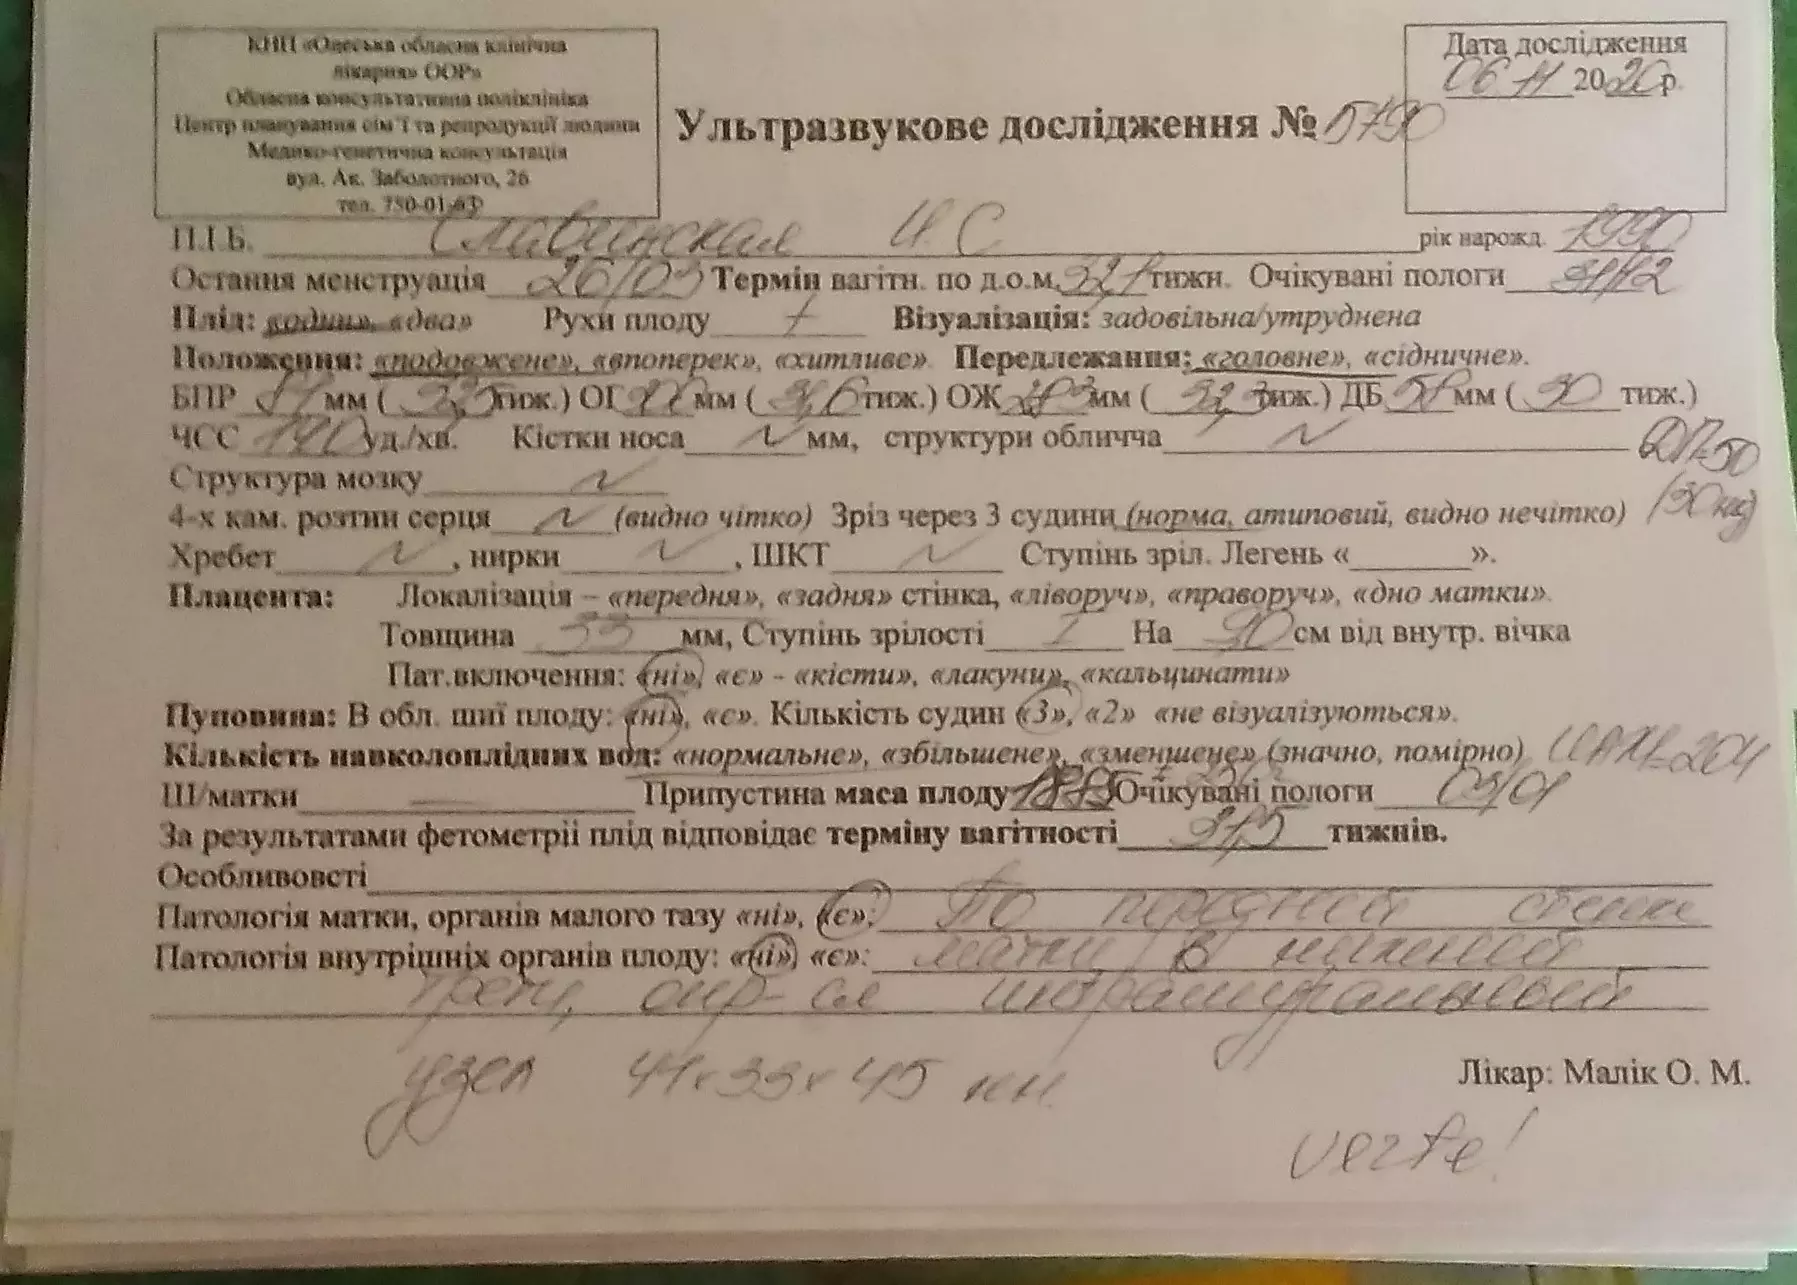 КНП «Одеська обласна клінічна
лікарня» ООР»
Обласна консультативна поліклініка
Центр планування сім'ї та репродукції людини
Медико-генетична консультація
вул. Ак. Заболотного, 26
тел. 750-01-63
Дата дослідження
06 11 2020р.
Ультразвукове дослідження № 5790
П.І.Б. Славинская И. С рік нарожд. 1990
Остання менструація 26/03 Термін вагітн. по д.о.м. 32,1 тижн. Очікувані пологи 31/12
Плід: «один», «два» Рухи плоду + Візуалізація: задовільна/утруднена
Положення: «подовжене», «впоперек», «хитливе». Передлежання: «головне», «сідничне».
БПР мм ( тиж.) ОГ мм ( 31,6 тиж.) ОЖ 283 мм ( 32,3 тиж.) ДБ 58 мм ( 30 тиж.)
ЧСС 140 уд./хв. Кістки носа N мм, структури обличча N
ДП-50
Структура мозку N
4-х кам. розтин серця N (видно чітко) Зріз через 3 судини (норма, атиповий, видно нечітко)
Хребет N , нирки N , ШКТ N Ступінь зріл. Легень « ».
Плацента: Локалізація – «передня», «задня» стінка, «ліворуч», «праворуч», «дно матки».
Товщина 33 мм, Ступінь зрілості I На 90 см від внутр. вічка
Пат.включення: «ні», «є» - «кісти», «лакуни», «кальцинати»
Пуповина: В обл. шиї плоду: «ні», «є». Кількість судин «3», «2» «не візуалізуються».
Кількість навколоплідних вод: «нормальне», «збільшене», «зменшене» (значно, помірно) ИАЖ-204
Ш/матки — Припустина маса плоду 1875 Очікувані пологи 03/01
За результатами фетометрії плід відповідає терміну вагітності 31,5 тижнів.
Особливовсті
Патологія матки, органів малого тазу «ні», «є»: По передней стенке
Патологія внутрішніх органів плоду: «ні» «є»: матки в нижней
трети, опр-ся интрамуральный
узел 41х33х45 мм.
Лікар: Малік О. М.
verte!